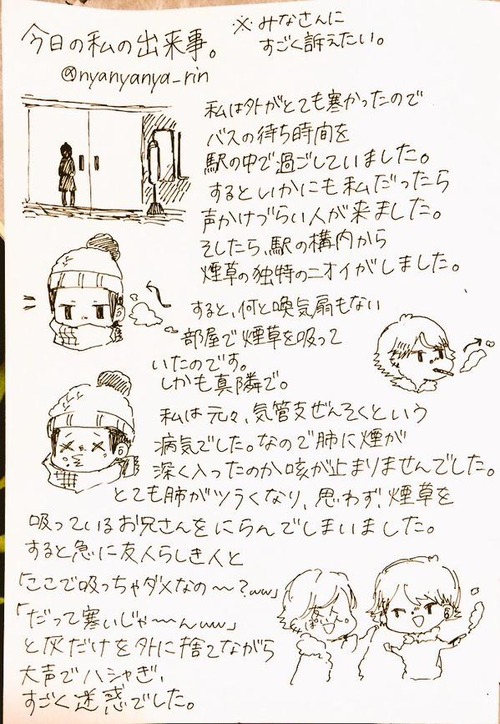 今日の私の出来事。
@nyanyanya_rin
※みなさんに
すごく訴えたい。
私は外がとても寒かったので
バスの待ち時間を
駅の中で過ごしていました。
するといかにも私だったら
声かけづらい人が来ました。
そしたら、駅の構内から
煙草の独特のニオイがしました。
すると、何と喚気扇もない
部屋で煙草を吸って
いたのです。
しかも真隣で。
私は元々、気管支ぜんそくという
病気でした。なので肺に煙が
深く入ったのか咳が止まりませんでした。
とても肺がツラくなり、思わず、煙草を
吸っているお兄さんをにらんでしまいました。
すると急に友人らしき人と
「ここで吸っちゃダメなの〜?ww」
「だって寒いじゃ〜んww」
と灰だけを外に捨てながら
大声でハシャぎ、
すごく迷惑でした。
友人